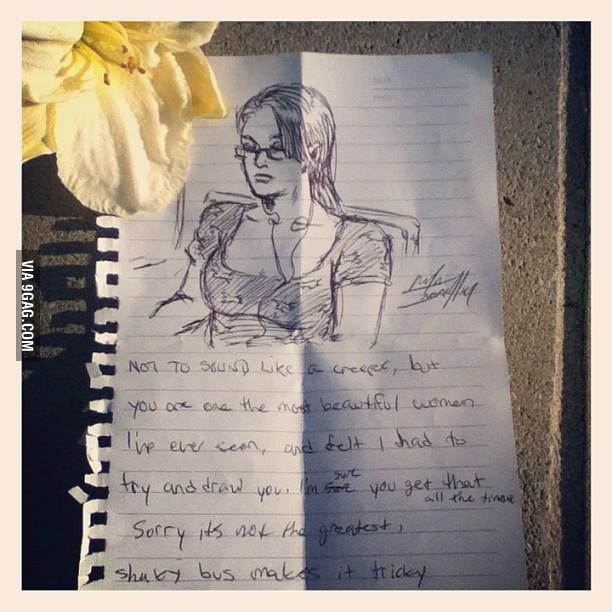 NOT TO SOUND like a creeper, but
you are one the most beautiful women
I've ever seen, and felt I had to
try and draw you. I'm sure you get that
all the time
Sorry its not the greatest,
shaky bus makes it tricky
VIA 9GAG.COM